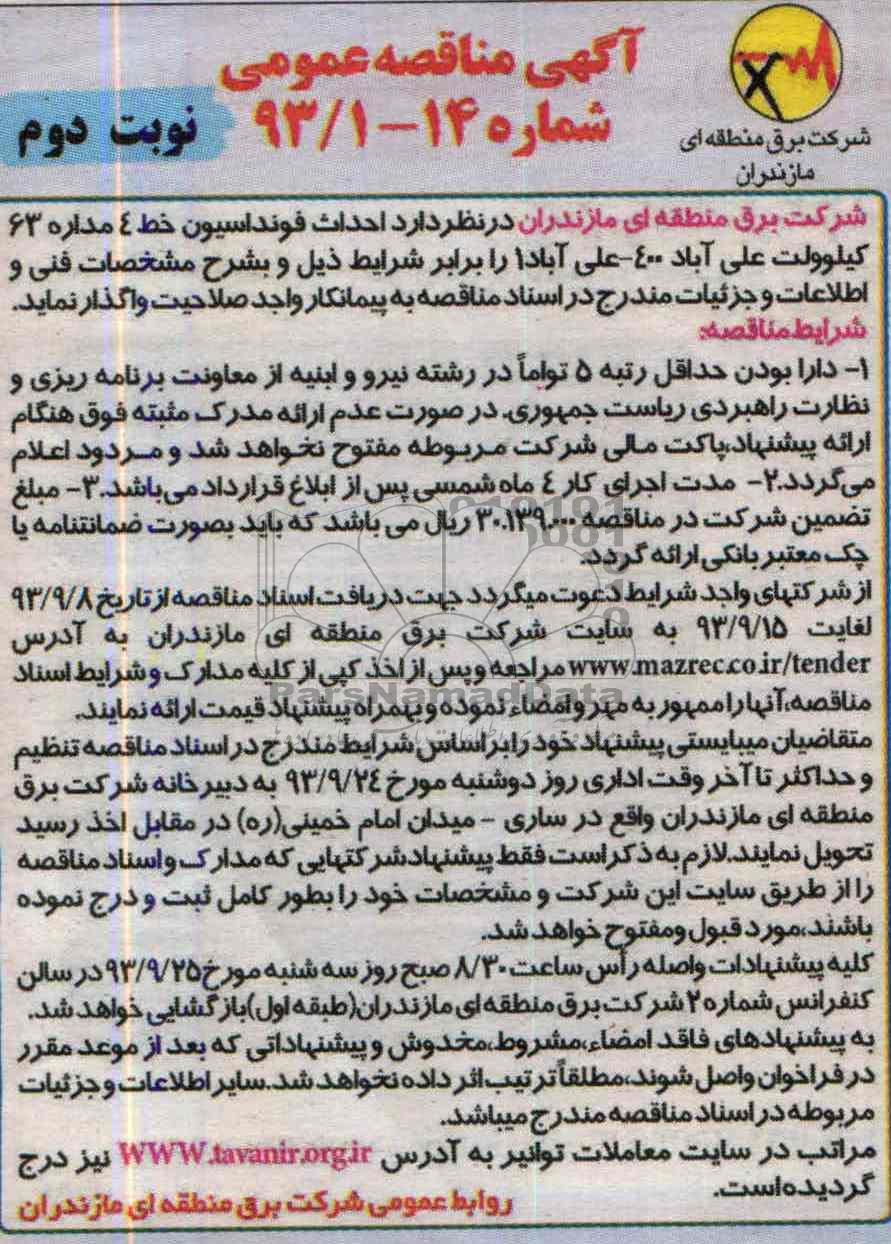 آگهی مناقصه عمومی
شماره ۱۴-۹۳/۱
نوبت دوم
شرکت برق منطقه ای
مازندران
شرکت برق منطقه ای مازندران درنظردارد احداث فونداسیون خط ٤ مداره ۶۳
کیلوولت علی آباد ٤۰۰-علی آباد۱ را برابر شرایط ذیل و بشرح مشخصات فنی و
اطلاعات و جزئیات مندرج در اسناد مناقصه به پیمانکار واجد صلاحیت واگذار نماید.
شرایط مناقصه:
۱- دارا بودن حداقل رتبه ۵ تواماً در رشته نیرو و ابنیه از معاونت برنامه ریزی و
نظارت راهبردی ریاست جمهوری. در صورت عدم ارائه مدرک مثبته فوق هنگام
ارائه پیشنهاد،پاکت مالی شرکت مربوطه مفتوح نخواهد شد و مردود اعلام
می‌گردد.۲- مدت اجرای کار ٤ ماه شمسی پس از ابلاغ قرارداد می‌باشد.۳- مبلغ
تضمین شرکت در مناقصه ۳۰.۱۳۹.۰۰۰ ریال می باشد که باید بصورت ضمانتنامه یا
چک معتبر بانکی ارائه گردد.
از شرکتهای واجد شرایط دعوت میگردد جهت دریافت اسناد مناقصه از تاریخ ۹۳/۹/۸
لغایت ۹۳/۹/۱۵ به سایت شرکت برق منطقه ای مازندران به آدرس
www.mazrec.co.ir/tender مراجعه و پس از اخذ کپی از کلیه مدارک و شرایط اسناد
مناقصه،آنها را ممهور به مهر و امضاء نموده و بهمراه پیشنهاد قیمت ارائه نمایند.
متقاضیان میبایستی پیشنهاد خود را براساس شرایط مندرج در اسناد مناقصه تنظیم
و حداکثر تا آخر وقت اداری روز دوشنبه مورخ ۹۳/۹/۲٤ به دبیرخانه شرکت برق
منطقه ای مازندران واقع در ساری - میدان امام خمینی(ره) در مقابل اخذ رسید
تحویل نمایند.لازم به ذکر است فقط پیشنهاد شرکتهایی که مدارک و اسناد مناقصه
را از طریق سایت این شرکت و مشخصات خود را بطور کامل ثبت و درج نموده
باشند،مورد قبول ومفتوح خواهد شد.
کلیه پیشنهادات واصله رأس ساعت ۸/۳۰ صبح روز سه شنبه مورخ ۹۳/۹/۲۵ در سالن
کنفرانس شماره ۲ شرکت برق منطقه ای مازندران(طبقه اول)بازگشایی خواهد شد.
به پیشنهادهای فاقد امضاء،مشروط،مخدوش و پیشنهاداتی که بعد از موعد مقرر
در فراخوان واصل شوند،مطلقاً ترتیب اثر داده نخواهد شد.سایر اطلاعات و جزئیات
مربوطه در اسناد مناقصه مندرج میباشد.
مراتب در سایت معاملات توانیر به آدرس WWW.tavanir.org.ir نیز درج
گردیده‌است.
روابط عمومی شرکت برق منطقه ای مازندران
ParsNamadData